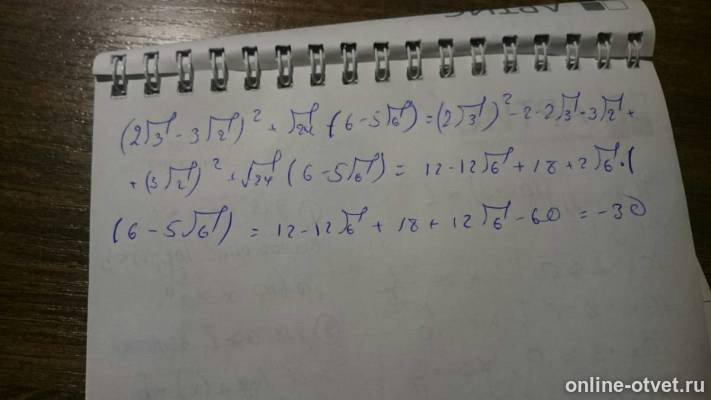 АРТИС
(2√3 - 3√2)² + √24 (6 - 5√6) = (2√3)² - 2·2√3·3√2 +
+ (3√2)² + √24 (6 - 5√6) = 12 - 12√6 + 18 + 2√6·(
(6 - 5√6) = 12 - 12√6 + 18 + 12√6 - 60 = -30
online-otvet.ru